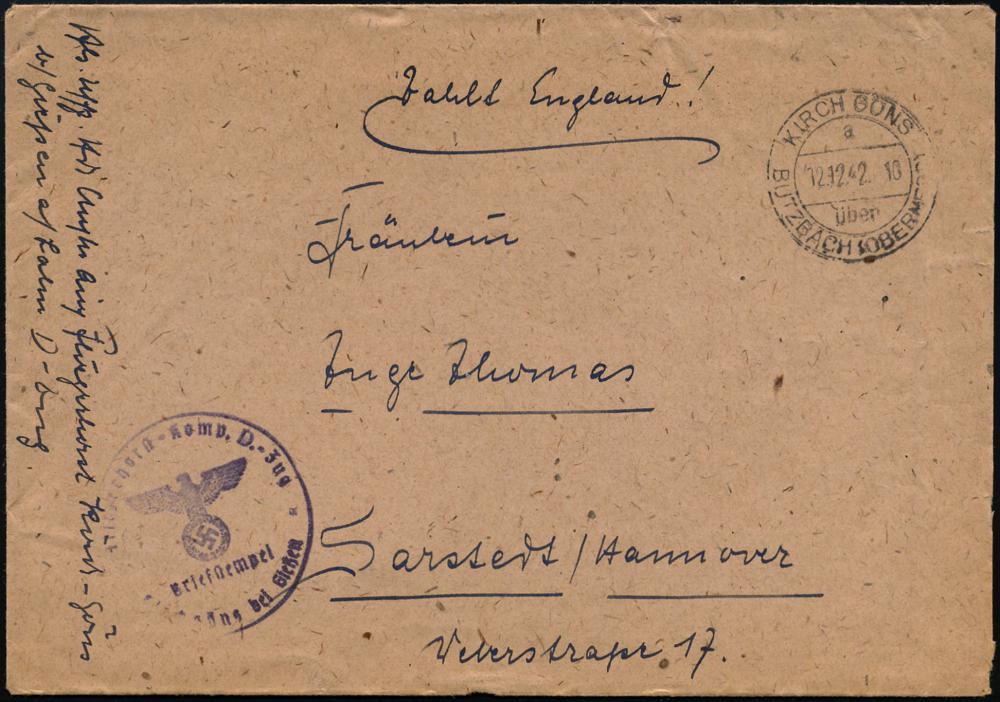 Zahlt England!
KIRCH GÖNS
a
12.12.42. 10
über
BUTZBACH (OBERHESS)
Fräulein
Inge Thomas
Sarstedt / Hannover
Weberstraße 17.
Abs. Uffz. Fliegerhorst Kirch-Göns
b/ Gießen a/ Lahn D-Zug
Fliegerhorst-Komp. D.-Zug
Briefstempel
Göns bei Gießen